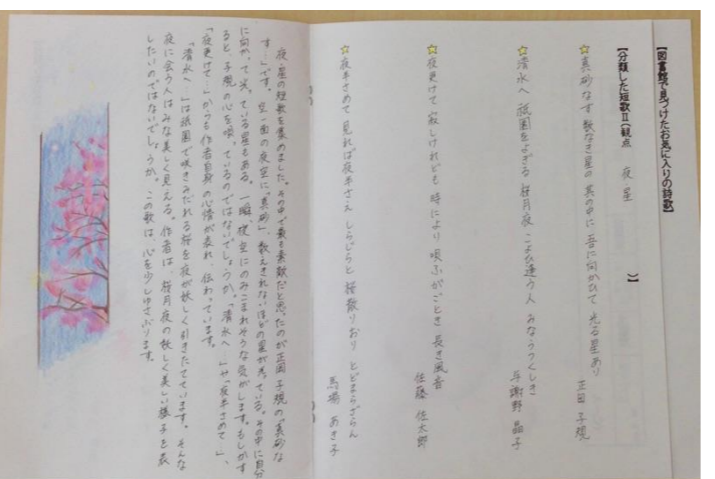 【図書館で見つけたお気に入りの詩歌】
【分類した短歌Ⅱ(観点 夜 星 )】
☆真砂なす 数なき星の 其の中に 吾に向かひて 光る星あり
正岡 子規
☆清水へ 祇園をよぎる 桜月夜 こよひ逢う人 みなうつくしき
与謝野 晶子
☆夜更けて 寂しけれども 時により 唄ふがごとき 長き風音
佐藤 佐太郎
☆夜半さめて 見れば夜半さえ しらじらと 桜散りおり とどまらざらん
馬場 あき子
夜・星の短歌を集めました。その中で最も素敵だと思ったのが正岡子規の「真砂な
す…」です。空一面の夜空に「真砂」、数えきれないほどの星が光っている。その中に自分
に向かって光っている星もある。一瞬、夜空にのみこまれそうな気がします。もしかす
ると、子規の心を唄っているのではないでしょうか。「清水へ…」や「夜半さめて…」、
「夜更けて…」からも作者自身の心情が表れ、伝わっています。
「清水へ…」は祇園で咲きみだれる桜を夜が妖しく引きたてています。そんな
夜に会う人はみな美しく見える。作者は、桜月夜の妖しく美しい様子を表
したいのではないでしょうか。この歌は、心を少しゆさぶります。